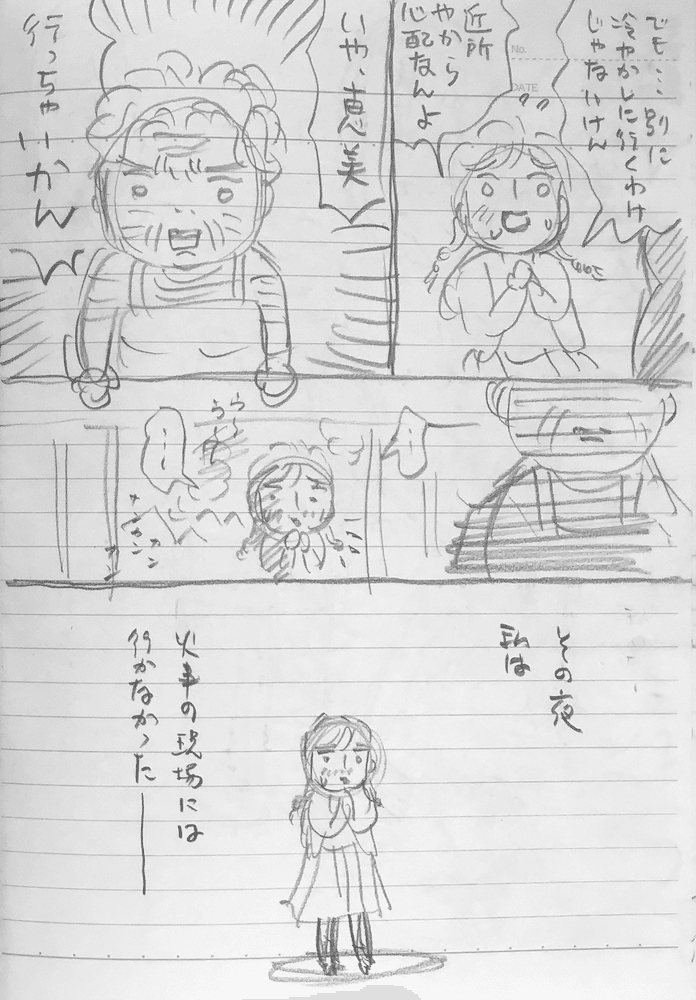 でも…別に
冷やかしに行くわけ
じゃないけん
近所
やから
心配なんよ
No.
DATE
いや、恵美
行っちゃいかん
…
…
カン
カン
その夜
私は
火事の現場には
行かなかった―